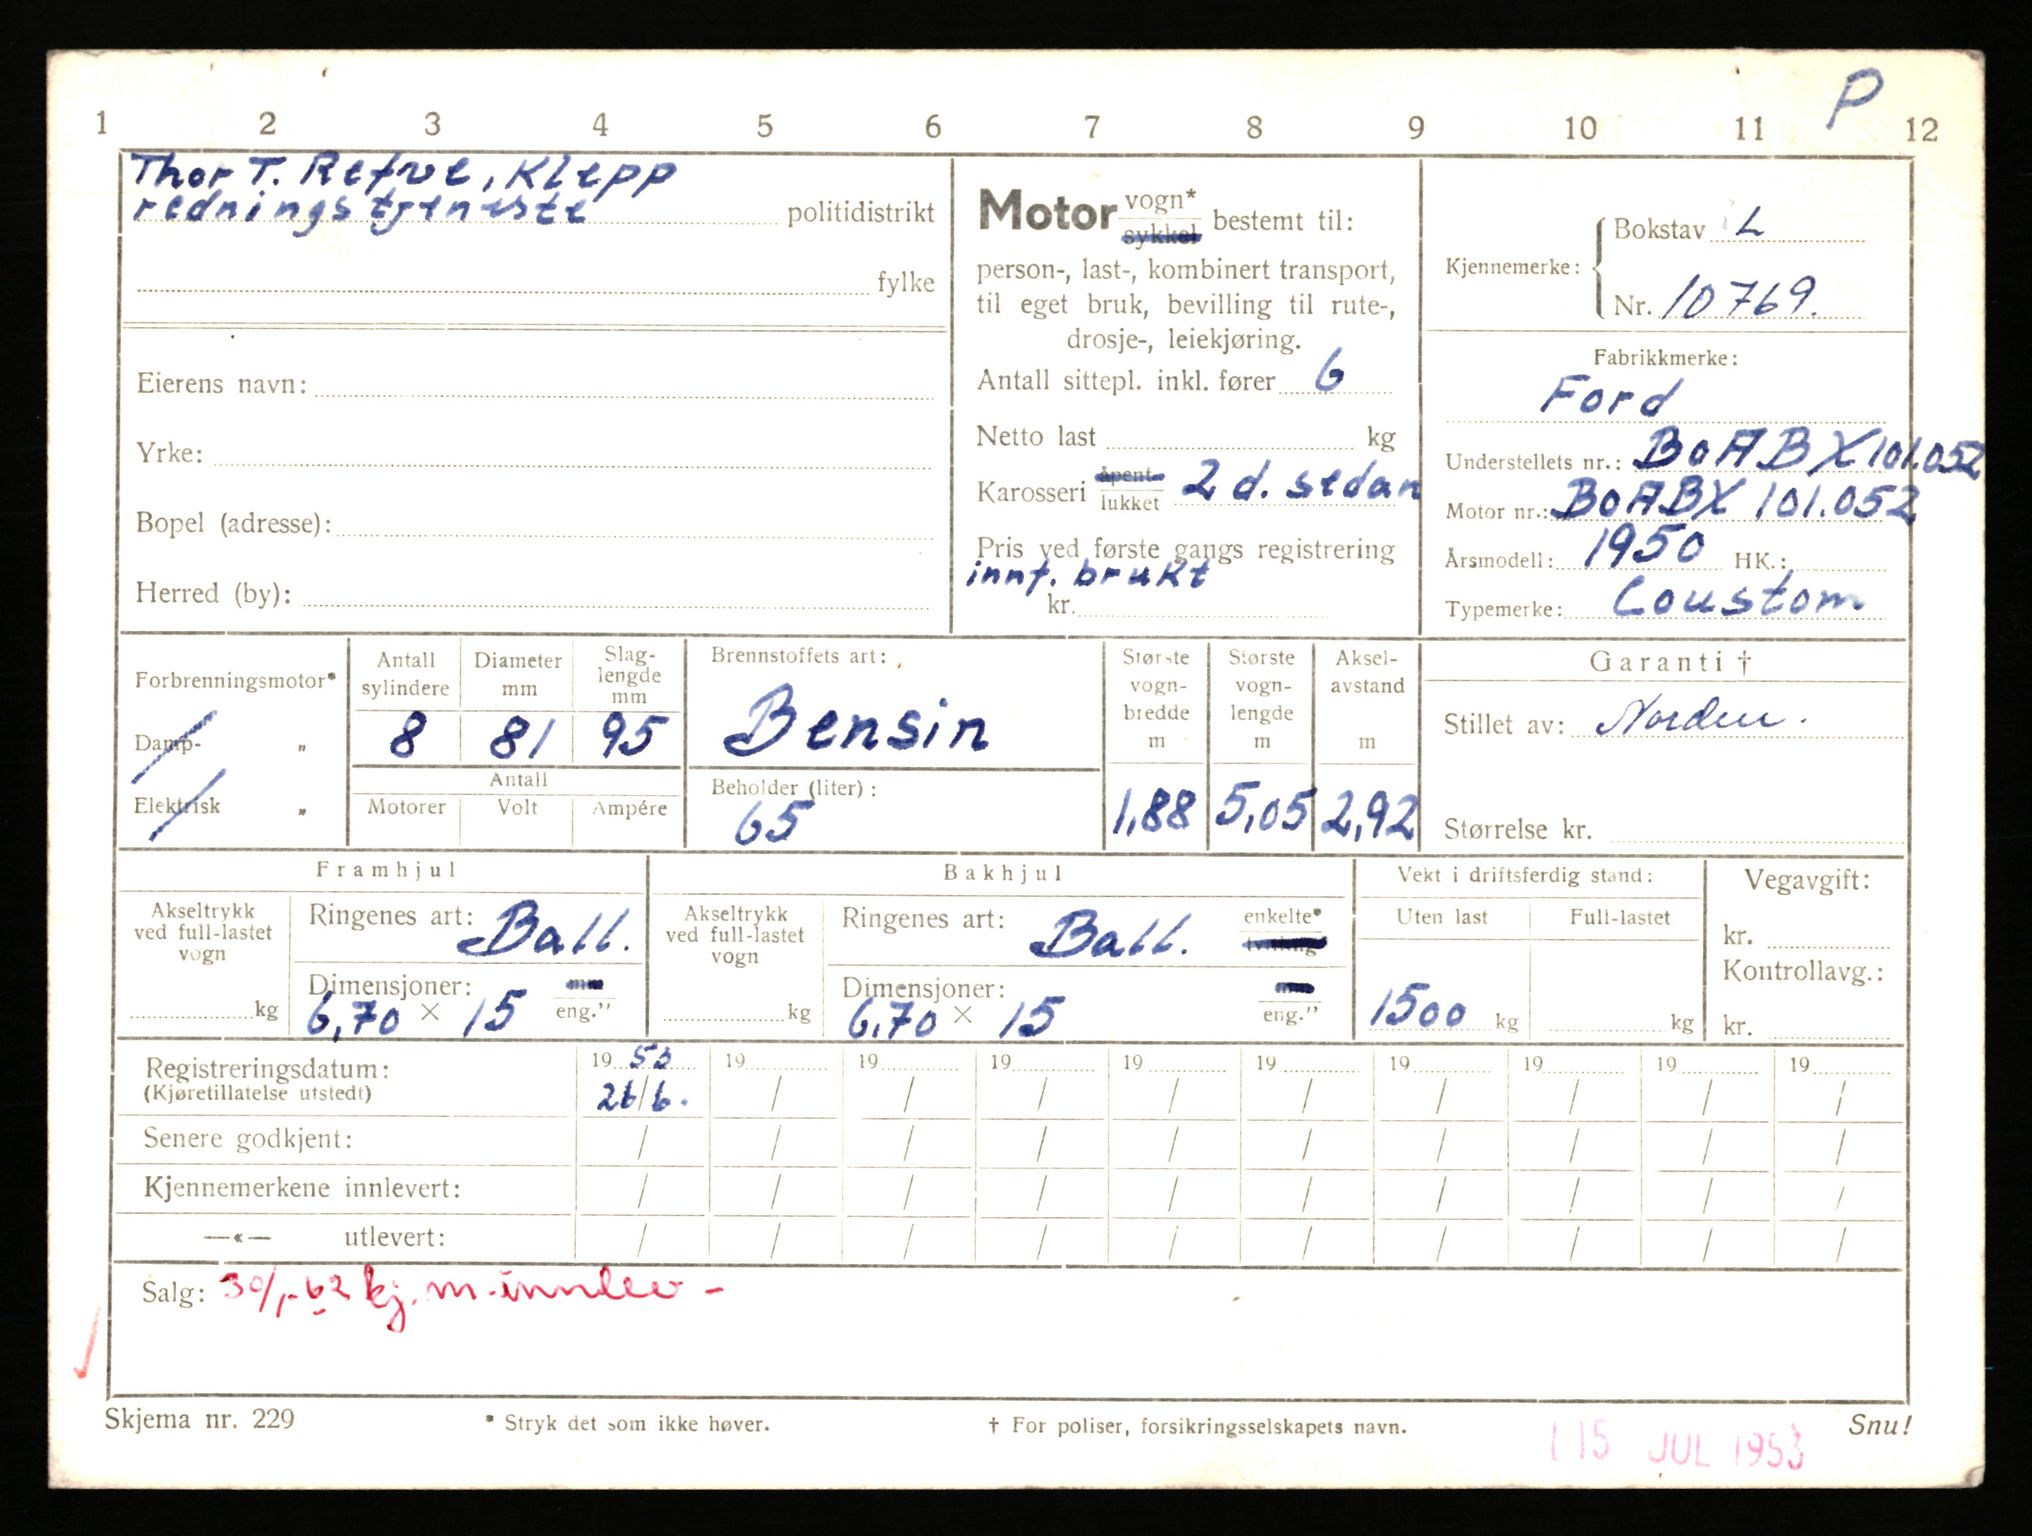 P
1 2 3 4 5 6 7 8 9 10 11 12
Thor T. Refve, Klepp
redningstjeneste politidistrikt
fylke
Eierens navn:
Yrke:
Bopel (adresse):
Herred (by):
Motor vogn* sykkel bestemt til:
person-, last-, kombinert transport,
til eget bruk, bevilling til rute-,
drosje-, leiekjøring.
Antall sittepl. inkl. fører 6
Netto last kg
Karosseri åpent lukket 2 d. sedan
Pris ved første gangs registrering
innf. brukt
kr.
Kjennemerke: Bokstav L
Nr. 10769.
Fabrikkmerke:
Ford
Understellets nr.: BoABX101.052
Motor nr.: BoABX 101.052
Årsmodell: 1950 HK.:
Typemerke: Coustom
Forbrenningsmotor*
Damp- "
Elektrisk "
Antall sylindere
8
Diameter mm
81
Slag-lengde mm
95
Antall
Motorer Volt Ampére
Brennstoffets art:
Bensin
Beholder (liter):
65
Største vogn-bredde m
1,88
Største vogn-lengde m
5,05
Aksel-avstand m
2,92
Garanti †
Stillet av: Norden.
Størrelse kr.
Framhjul
Akseltrykk ved full-lastet vogn
kg
Ringenes art: Ball.
Dimensjoner: mm
6,70 × 15 eng."
Bakhjul
Akseltrykk ved full-lastet vogn
kg
Ringenes art: Ball. enkelte* tvilling
Dimensjoner: mm
6.70 × 15 eng."
Vekt i driftsferdig stand:
Uten last Full-lastet
1500 kg kg
Vegavgift:
kr.
Kontrollavg.:
kr.
Registreringsdatum: 19 53 19 19 19 19 19 19 19 19 19
(Kjøretillatelse utstedt) 26/6. / / / / / / / / /
Senere godkjent: / / / / / / / / / /
Kjennemerkene innlevert: / / / / / / / / / /
—«— utlevert: / / / / / / / / / /
Salg: 30/1-62 kj. m. innlev -
Skjema nr. 229 * Stryk det som ikke høver. † For poliser, forsikringsselskapets navn. Snu!
15 JUL 1953